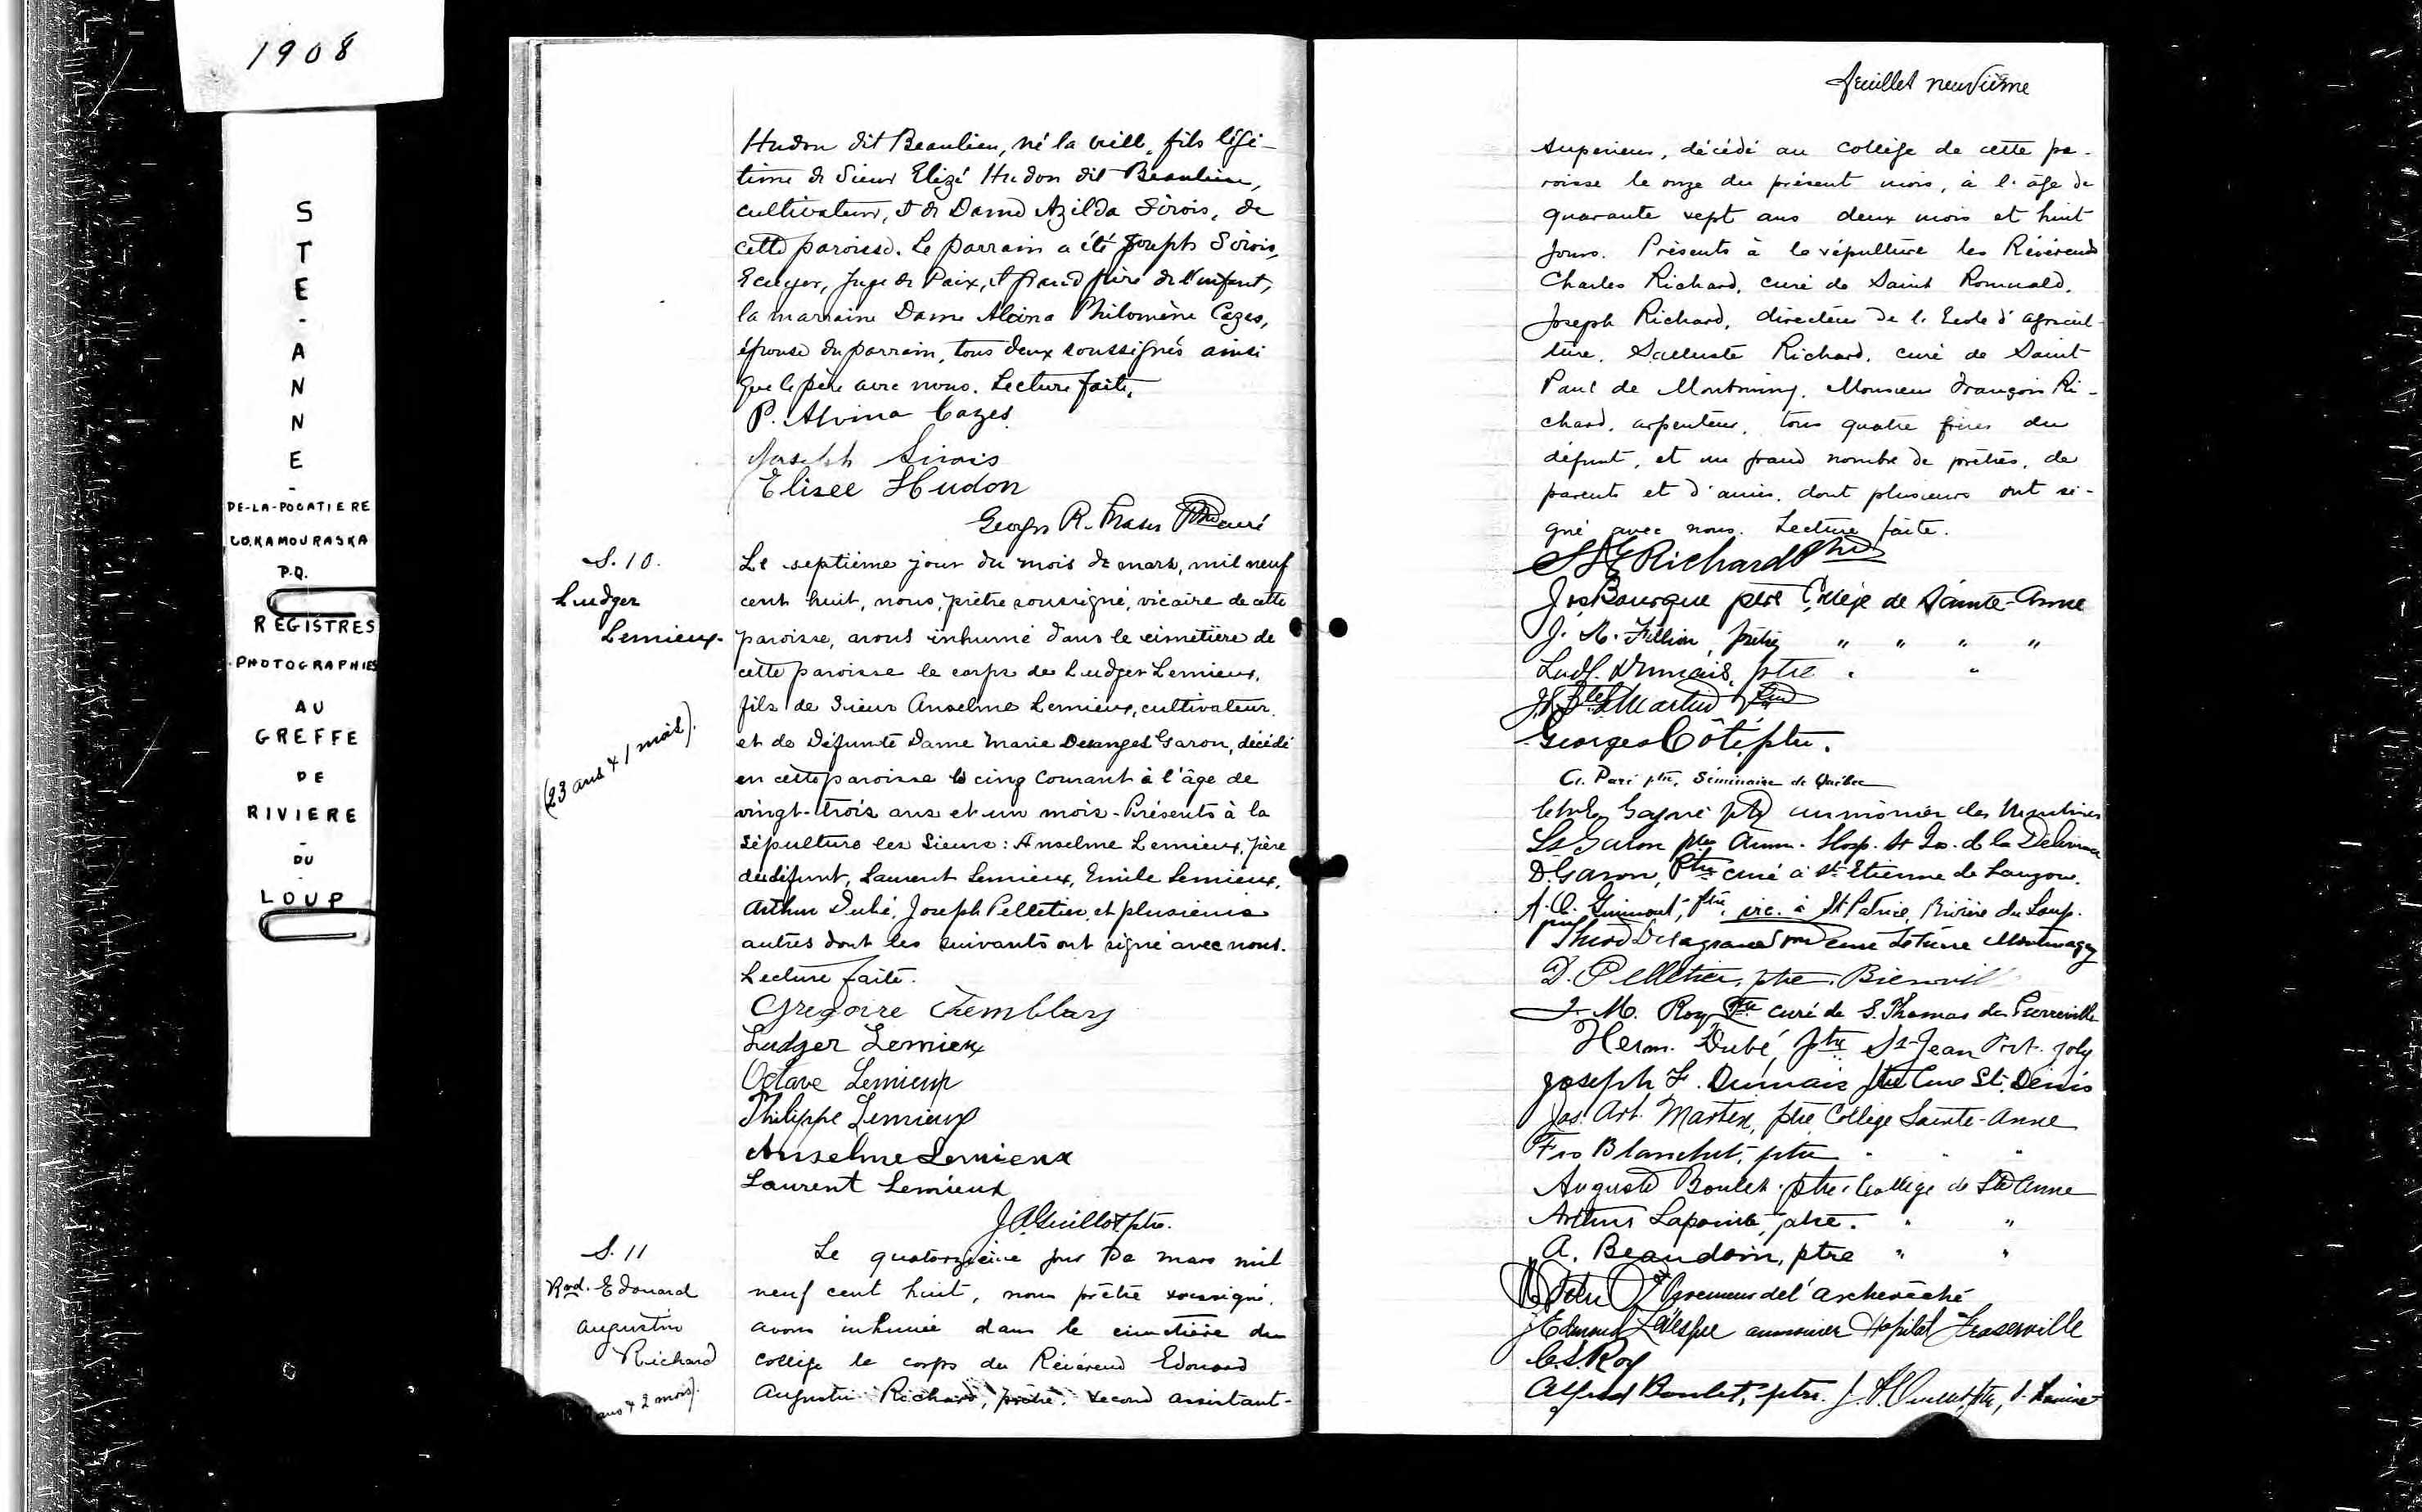 1908
STE-ANNE-
DE-LA-POCATIERE
CO. KAMOURASKA
P.Q.
REGISTRES
PHOTOGRAPHIES
AU
GREFFE
DE
RIVIERE
-
DU
-
LOUP
Hudon dit Beaulieu, né la veille, fils légi-
time de Sieur Elizé Hudon dit Beaulieu,
cultivateur, et de Dame Azilda Sirois, de
cette paroisse. Le parrain a été Joseph Sirois,
Ecuyer, Juge de Paix, et grand père de l'enfant,
la marraine Dame Alvina Philomène Cazes,
épouse du parrain, tous deux soussignés ainsi
que le père avec nous. Lecture faite.
P. Alvina Cazes
Joseph Sirois
Elisée Hudon
Georges R. Fraser Ptre curé
S. 10.
Ludger
Lemieux.
(23 ans & 1 mois).
Le septième jour du mois de mars, mil neuf
cent huit, nous, prêtre soussigné, vicaire de cette
paroisse, avons inhumé dans le cimetière de
cette paroisse le corps de Ludger Lemieux,
fils de Sieur Anselme Lemieux, cultivateur
et de Défunte Dame Marie Desanges Garon, décédé
en cette paroisse le cinq courant à l'âge de
vingt-trois ans et un mois. Présents à la
sépulture les Sieurs: Anselme Lemieux, père
du défunt, Laurent Lemieux, Emile Lemieux,
Arthur Dubé, Joseph Pelletier, et plusieurs
autres dont les suivants ont signé avec nous.
Lecture faite.
Gregoire Tremblay
Ludger Lemieux
Octave Lemieux
Philippe Lemieux
Anselme Lemieux
Laurent Lemieux
J. A. Guillot ptre.
S. 11
Rvd. Edouard
Augustin
Richard
ans & 2 mois).
Le quatorzième jour de mars mil
neuf cent huit, nous prêtre soussigné,
avons inhumé dans le cimetière du
collège le corps du Révérend Edouard
Augustin Richard, prêtre, second assistant-
feuillet neuvième
supérieur, décédé au collège de cette pa-
roisse le onze du présent mois, à l'âge de
quarante sept ans deux mois et huit
jours. Présents à la sépulture les Révérends
Charles Richard, curé de Saint Romuald,
Joseph Richard, directeur de l'Ecole d'agricul-
ture, Salluste Richard, curé de Saint
Paul de Montminy, Monsieur François Ri-
chard, arpenteur, tous quatre frères du
défunt, et un grand nombre de prêtres, de
parents et d'amis, dont plusieurs ont si-
gné avec nous. Lecture faite.
Richard Ptre
Jos. Bourque ptre Collège de Sainte-Anne
Fillion, prêtre " " " "
Ludg. Dumais, ptre " "
Martin Ptre
Georges Côté, ptre.
Paré ptre, Séminaire de Québec
Gagné ptre aumônier des Ursulines
Ls Galon ptre Aum. Hosp. St Jos. de la Délivrance
D. Garon, Ptre curé à St Etienne de Lauzon.
Guimont, ptre, vic. à St Patrice, Rivière du Loup.
Delagrave ptre curé Montmagny
D. Pelletier, ptre, Bienvill
J. M. Roy Ptre curé de S. Thomas de Pierreville
Herm. Dubé, ptre St-Jean Port-Joly
Joseph F. Dumais ptre Curé St. Denis
Jos. Art. Martin, ptre Collège Sainte-Anne
Frs Blanchet, ptre " " "
Auguste Boulet, ptre, Collège de Ste Anne
Arthur Lapointe, ptre. " "
A. Beaudoin, ptre " "
Procureur de l'archevêché
aumonier Hôpital Fraserville
C. S. Roy
Alfred Boulet, ptre. J. ptre,